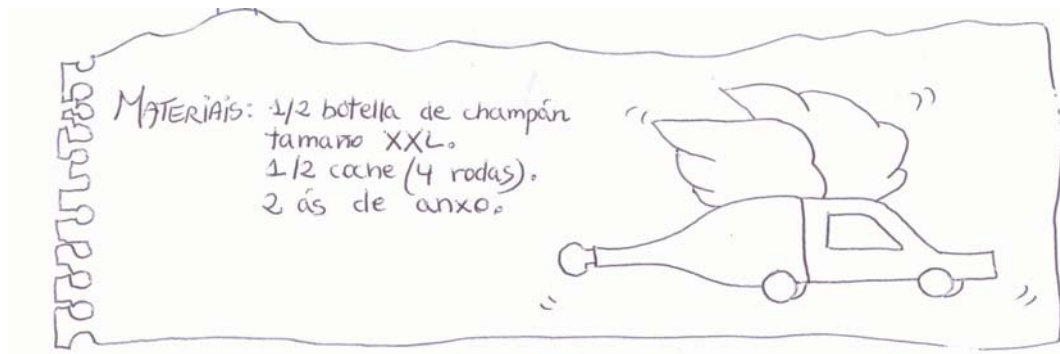 MATERIAIS: 1/2 botella de champán
tamaño XXL.
1/2 coche (4 rodas).
2 ás de anxo.